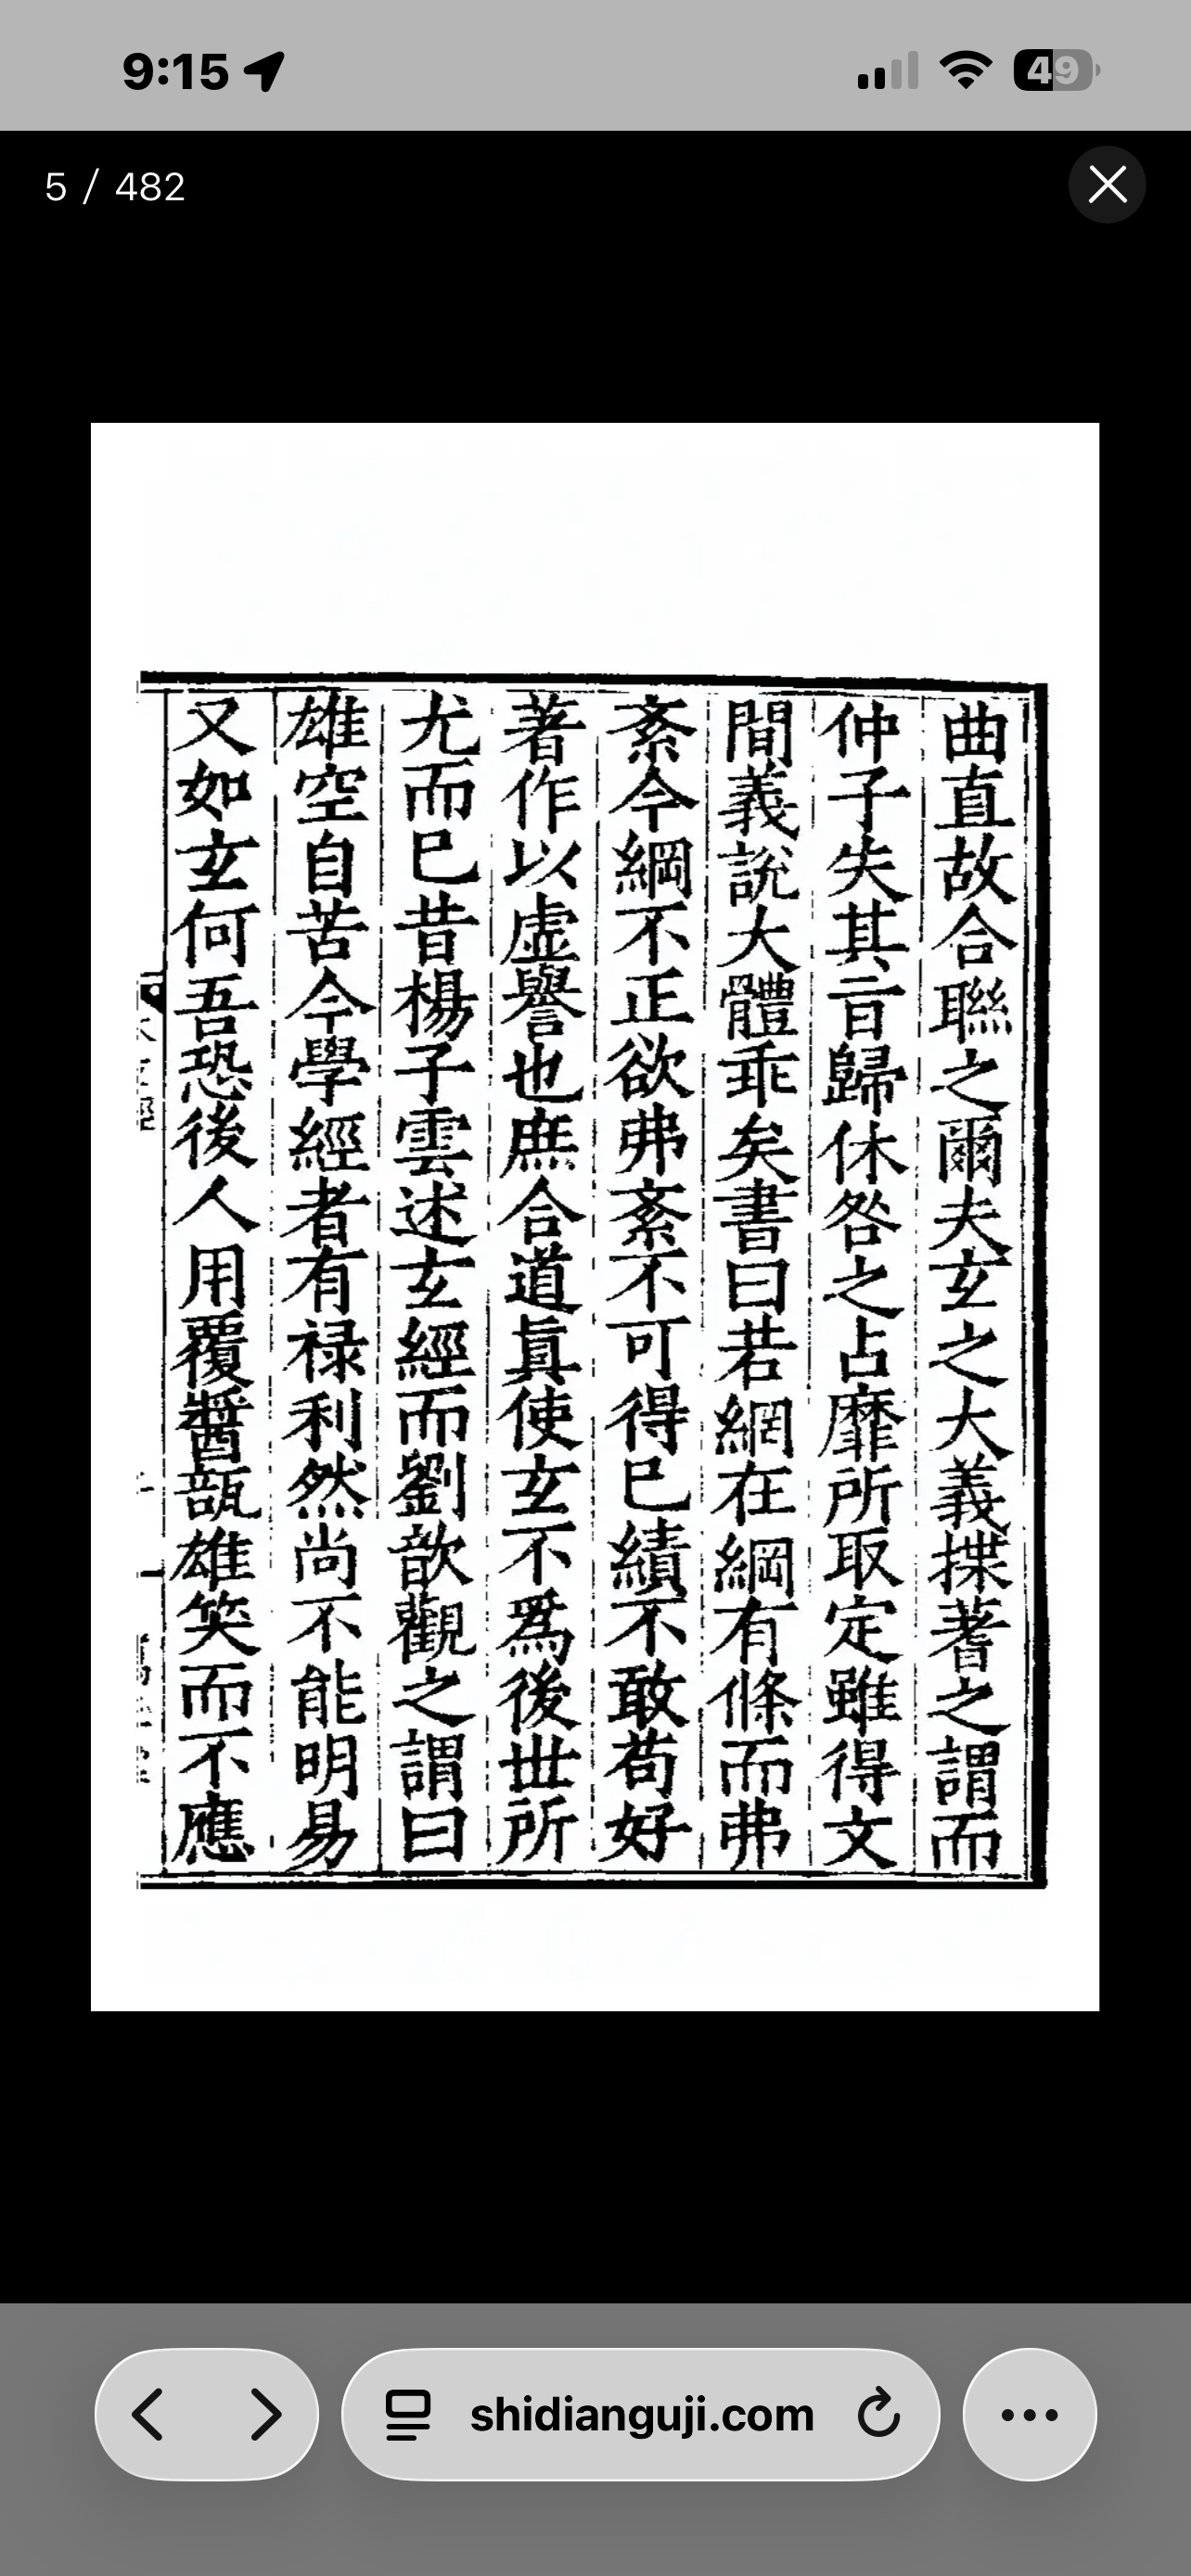 9:15
49
5 / 482
曲直故合聯之爾夫玄之大義揲蓍之謂而
仲子失其旨歸休咎之占靡所取定雖得文
間義說大體乖矣書曰若網在綱有條而弗
紊今綱不正欲弗紊不可得已績不敢苟好
著作以虛譽也庶合道真使玄不爲後世所
尤而已昔楊子雲述玄經而劉歆觀之謂曰
雄空自苦今學經者有祿利然尚不能明易
又如玄何吾恐後人用覆醬瓿雄笑而不應
shidianguji.com